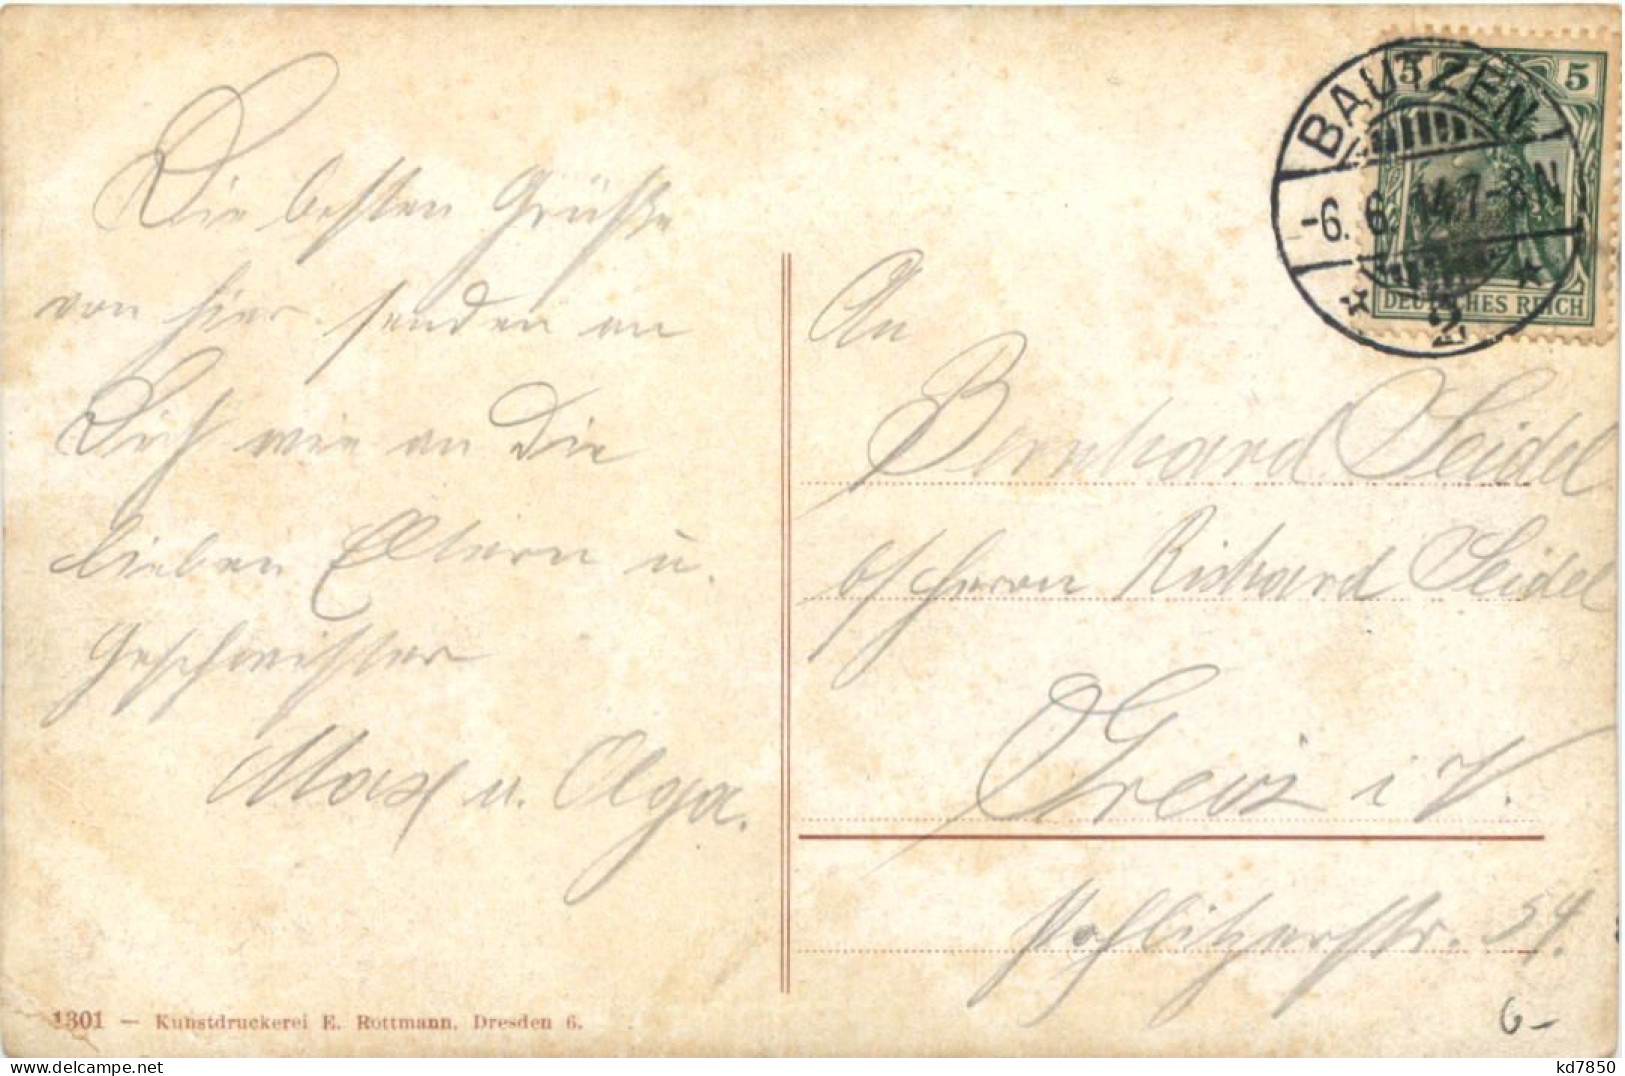 Die besten Grüße
von hier senden an
Dich wie an die
lieben Eltern u.
Geschwister
Max u. Olga.
1301 — Kunstdruckerei E. Rottmann, Dresden 6.
BAUTZEN
-6. 6. 14. 7-8 N
* 2 *
5 5
DEUTSCHES REICH
An
Bernhard Seidel
b/ Herrn Richard Seidel
Greiz i. V.
Pohlitzerstr. 54.
6-
kd7850